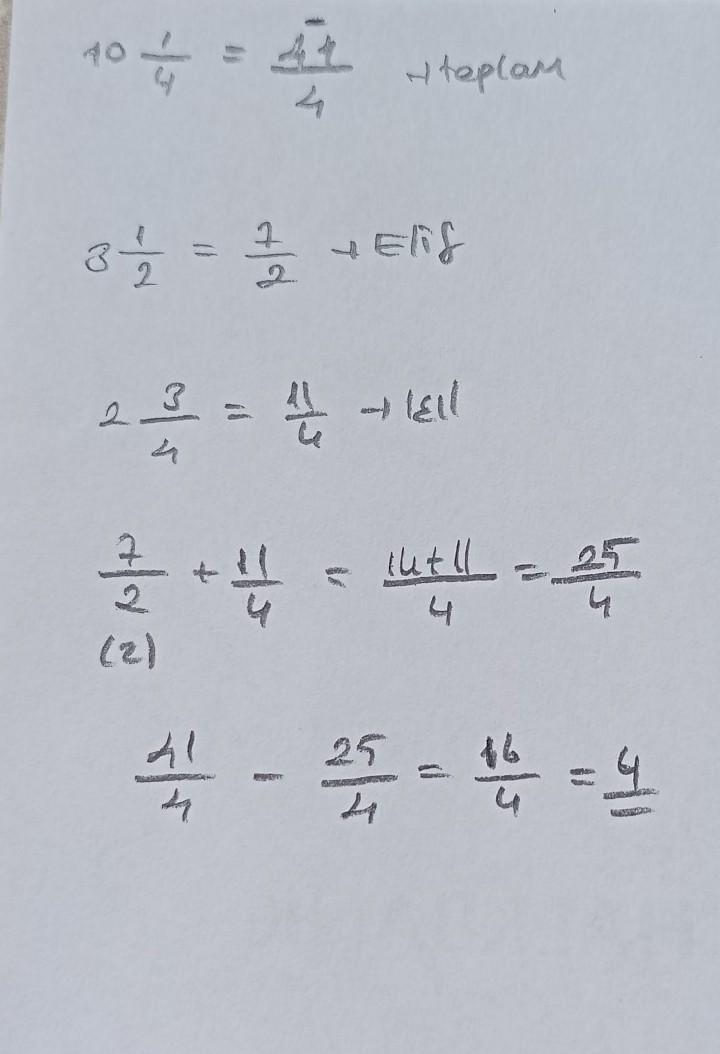 10 1/4 = 41/4 → toplam
3 1/2 = 7/2 → Elif
2 3/4 = 11/4
7/2 + 11/4 = 14+11/4 = 25/4
(2)
41/4 - 25/4 = 16/4 = 4